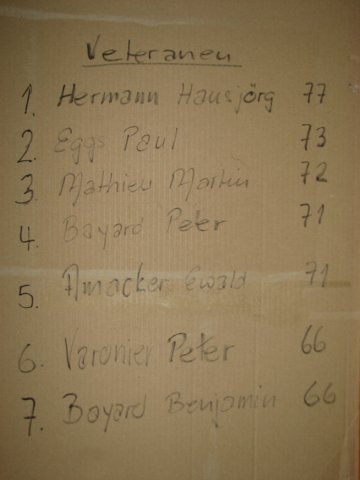 Veteranen
1. Hermann Hausjörg 77
2. Eggs Paul 73
3. Mathieu Martin 72
4. Bayard Peter 71
5. Amacker Ewald 71
6. Varonier Peter 66
7. Bayard Benjamin 66